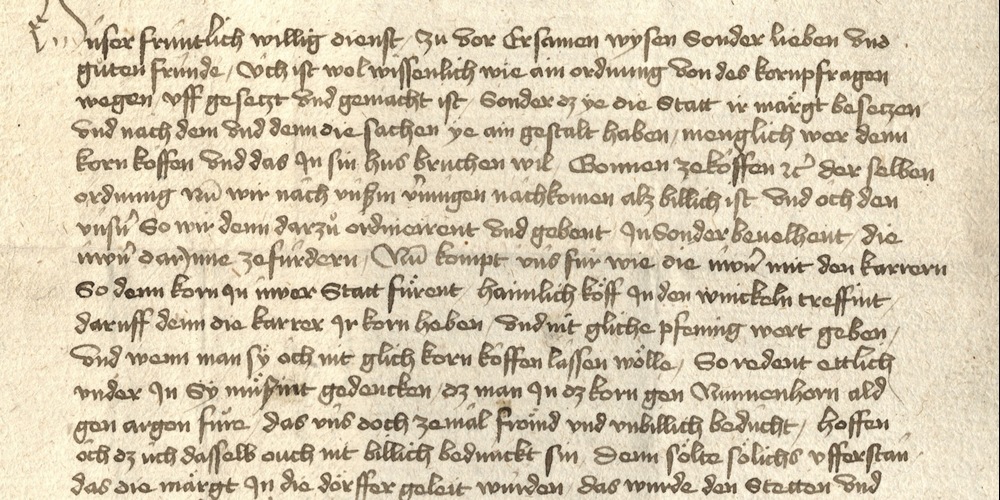 Unser fruntlich willig dienst / zu vor Ersamen wysen Sonder lieben vnd
guten frunde / Vch ist wol wissenlich wie ain ordnung von des kornpfragen
wegen vff gesetzt vnd gemacht ist / Sonder dz ye die Statt ir märgt besetzen
vnd nach dem vnd denn die sachen ye ain gestalt haben / menglich wer denn
korn koffen vnd das In sin hus bruchen wil / Gonnen ze koffen zc der selben
ordnung Nu wir nach vnßm vmugen nachkomen alz billich ist vnd och den
vnsn So wir denn darzu ordinierent vnd gebent In Sonder beuelhent / die
iwn darJnne ze furdern / Nu kompt vns fur wie die iwn mit den karrern
So denn korn In iuwer Statt fürent / haimlich köff In den winckeln treffint /
daruff denn die karrer Ir korn heben / vnd nit gliche pfening wert geben /
vnd wenn man sÿ och nit glich korn köffen lassen wölle / So redent ettlich
vnder In Sy müssint gedencken / dz man In dz korn gen Nunnenhorn ald
gen argen füre / das vns doch zemal frömd vnd vnbillich beducht / hoffen
och dz uch dasselb ouch nit billich bedunckt sin / Denn sölte sölichs vfferstan
das die märgt In die dörffer geleit wurden / das wurde den Stetten vnd